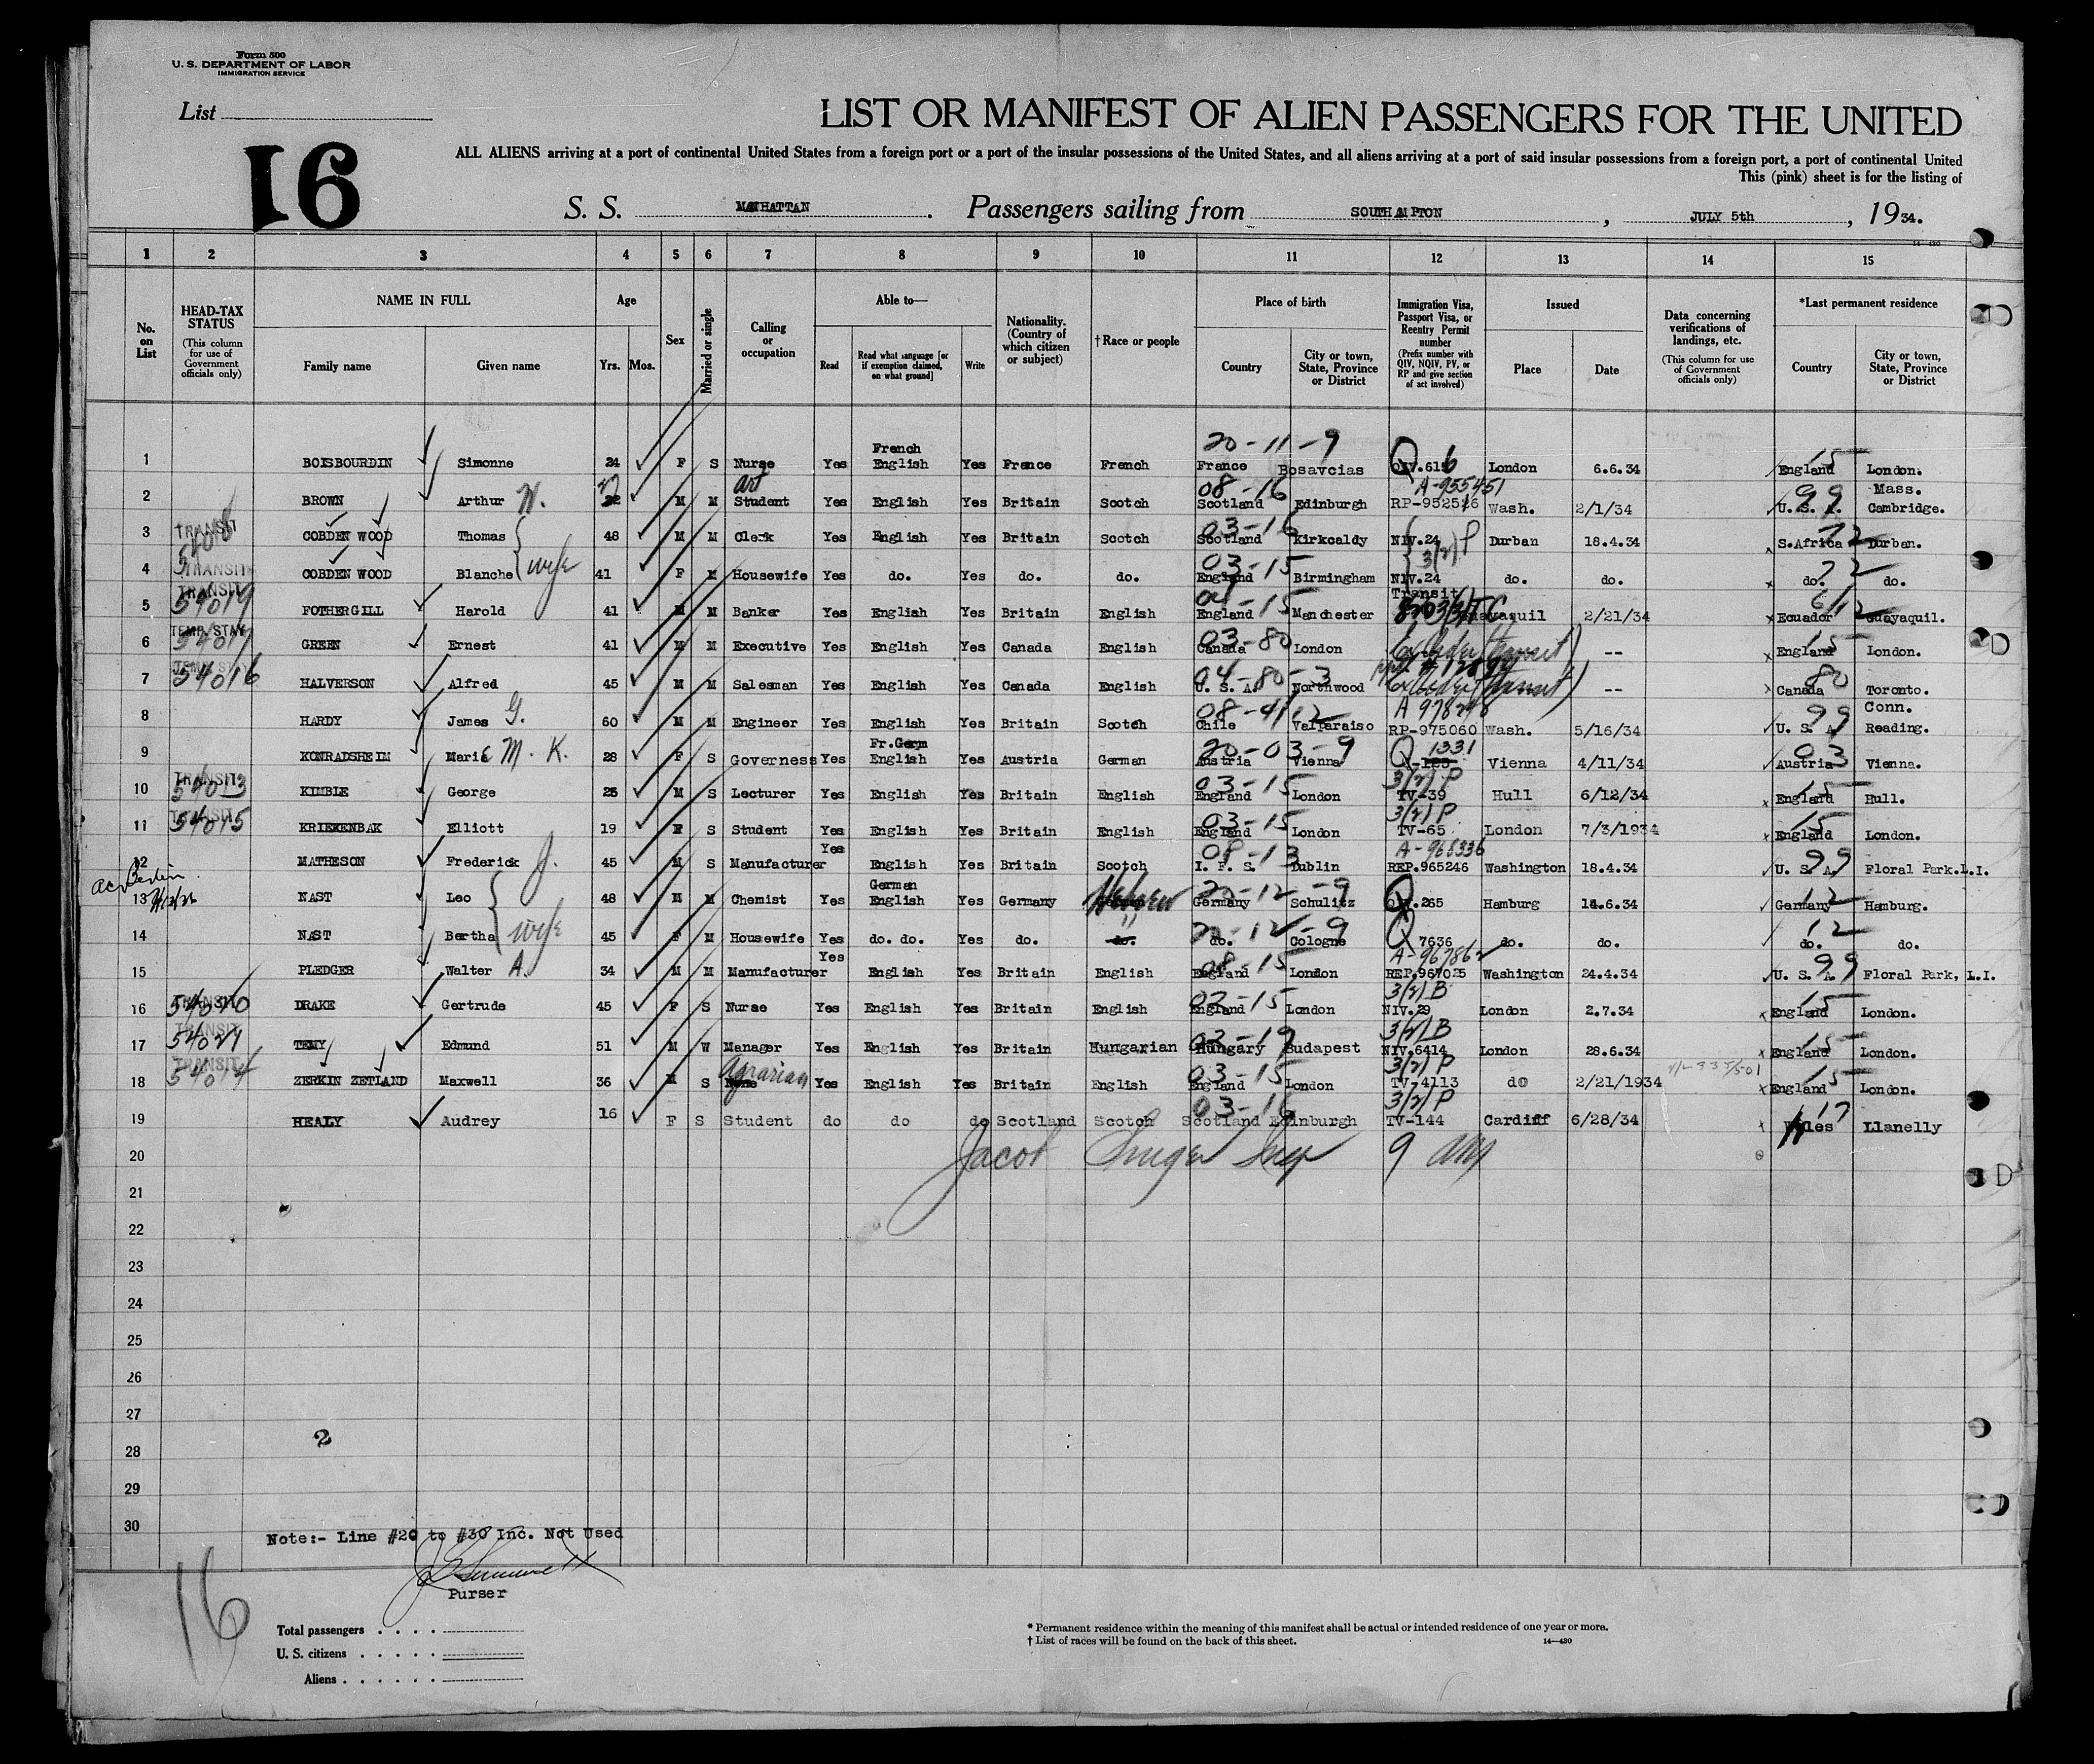 Form 500
U. S. DEPARTMENT OF LABOR
IMMIGRATION SERVICE
List
16
LIST OR MANIFEST OF ALIEN PASSENGERS FOR THE UNITED
ALL ALIENS arriving at a port of continental United States from a foreign port or a port of the insular possessions of the United States, and all aliens arriving at a port of said insular possessions from a foreign port, a port of continental United
This (pink) sheet is for the listing of
S. S. MANHATTAN. Passengers sailing from SOUTHAMPTON, JULY 5th, 1934.
14-430
1 2 3 4 5 6 7 8 9 10 11 12 13 14 15
No. on List
HEAD-TAX STATUS (This column for use of Government officials only)
NAME IN FULL Family name Given name
Age Yrs. Mos.
Sex
Married or single
Calling or occupation
Able to— Read Read what language [or if exemption claimed, on what ground] Write
Nationality. (Country of which citizen or subject)
† Race or people
Place of birth Country City or town, State, Province or District
Immigration Visa, Passport Visa, or Reentry Permit number (Prefix number with QIV, NQIV, PV, or RP and give section of act involved)
Issued Place Date
Data concerning verifications of landings, etc. (This column for use of Government officials only)
*Last permanent residence Country City or town, State, Province or District
20-11-9
1 BOISBOURDIN Simonne 24 F S Nurse Yes French English Yes France French France Bosavcias QIV.6156 London 6.6.34 England 15 London.
08-16 A-955451
2 BROWN Arthur W. 27 M M Art Student Yes English Yes Britain Scotch Scotland Edinburgh RP-952526 Wash. 2/1/34 U. S. A. 99 Mass. Cambridge.
03-16
3 TRANSIT COBDEN WOOD Thomas 48 M M Clerk Yes English Yes Britain Scotch Scotland Kirkcaldy NIV.24 3(2)P Durban 18.4.34 S.Africa 72 Durban.
03-15
4 TRANSIT COBDEN WOOD Blanche wife 41 F M Housewife Yes do. Yes do. do. England Birmingham NIV.24 do. do. do. 72 do.
5 TRANSIT 54019 FOTHERGILL Harold 41 M M Banker Yes English Yes Britain English England Manchester Transit Guayaquil 2/21/34 Ecuador Guayaquil.
03-80
6 TEMP. STAY 54017 GREEN Ernest 41 M M Executive Yes English Yes Canada English Canada London -- England 15 London.
04-80-3
7 54016 HALVERSON Alfred 45 M M Salesman Yes English Yes Canada English U. S. A. Northwood -- Canada 80 Toronto.
A 978298
8 HARDY James G. 60 M M Engineer Yes English Yes Britain Scotch Chile Valparaiso RP-975060 Wash. 5/16/34 U. S. A. 99 Conn. Reading.
20-03-9
9 KONRADSHEIM Marie M. K. 28 F S Governess Yes Fr.Germ English Yes Austria German Austria Vienna Q 1331 Vienna 4/11/34 Austria 03 Vienna.
03-15 3(2)P
10 TRANSIT 54013 KIMBLE George 25 M S Lecturer Yes English Yes Britain English England London TV-39 Hull 6/12/34 England 15 Hull.
03-15 3(2)P
11 54015 KRIEKENBAK Elliott 19 F S Student Yes English Yes Britain English England London TV-65 London 7/3/1934 England 15 London.
08-13 A-968336
12 MATHESON Frederick J. 45 M S Manufacturer Yes English Yes Britain Scotch I. F. S. Dublin REP.965246 Washington 18.4.34 U. S. A. 99 Floral Park.L.I.
20-12-9
13 NAST Leo 48 M M Chemist Yes German English Yes Germany Hebrew Germany Schulitz QIV.265 Hamburg 14.6.34 Germany 12 Hamburg.
20-12-9
14 NAST Bertha wife 45 F M Housewife Yes do. do. Yes do. do. do. Cologne Q 7636 do. do. do. 12 do.
08-15 A-967862
15 PLEDGER Walter A. 34 M M Manufacturer Yes English Yes Britain English England London REP.967025 Washington 24.4.34 U. S. A. 99 Floral Park, L.I.
03-15 3(2)B
16 TRANSIT 54020 DRAKE Gertrude 45 F S Nurse Yes English Yes Britain English England London NIV.29 London 2.7.34 England 15 London.
03-19 3(2)B
17 TRANSIT 54021 TEMY Edmund 51 M W Manager Yes English Yes Britain Hungarian Hungary Budapest NIV.6414 London 28.6.34 England 15 London.
03-15 3(2)P
18 TRANSIT 54014 ZERKIN ZETLAND Maxwell 36 M S Agrarian None Yes English Yes Britain English England London TV-4113 do 2/21/1934 England 15 London.
03-16 3(2)P
19 HEALY Audrey 16 F S Student do do do Scotland Scotch Scotland Edinburgh TV-144 Cardiff 6/28/34 Wales 17 Llanelly
20 Jacob 9
21
22
23
24
25
26
27
28 2
29
30
Note:- Line #20 to #30 Inc. Not Used
Purser
16
Total passengers . . . .
U. S. citizens . . . . .
Aliens . . . . . .
* Permanent residence within the meaning of this manifest shall be actual or intended residence of one year or more.
† List of races will be found on the back of this sheet.
14—430